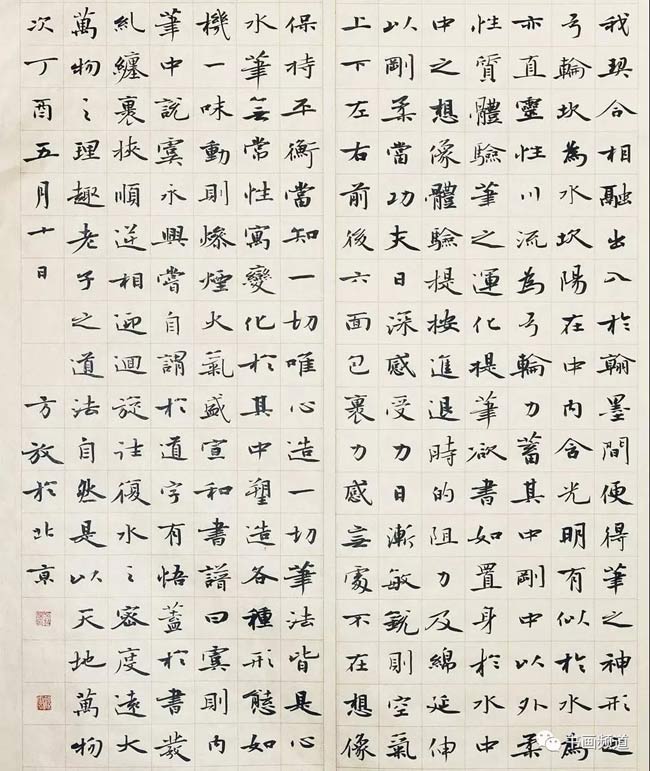 我契合相融出入於翰墨間便得筆之神形
弓輪坎為水坎陽在中内含光明有似於水為
亦直靈性川流為弓輪力蓄其中剛中以外柔
性質體驗筆之運化提筆欲書如置身於水中
中之想像體驗提按進退時的阻力及綿延伸
以剛柔當功夫日深感受力日漸敏銳則空氣
上下左右前後六面包裹力感無處不在想像
保持平衡當知一切唯心造一切筆法皆是心
水筆無常性寓變化於其中塑造各種形態如
機一味動則燥煙火氣盛宣和書譜曰虞則内
筆中說虞永興嘗自謂於道字有悟蓋於書發
糺纏裹挾順逆相迎迴旋往復水之密度遠大
萬物之理趣老子之道法自然是以天地萬物
次丁酉五月十日 方放於北京
书画频道